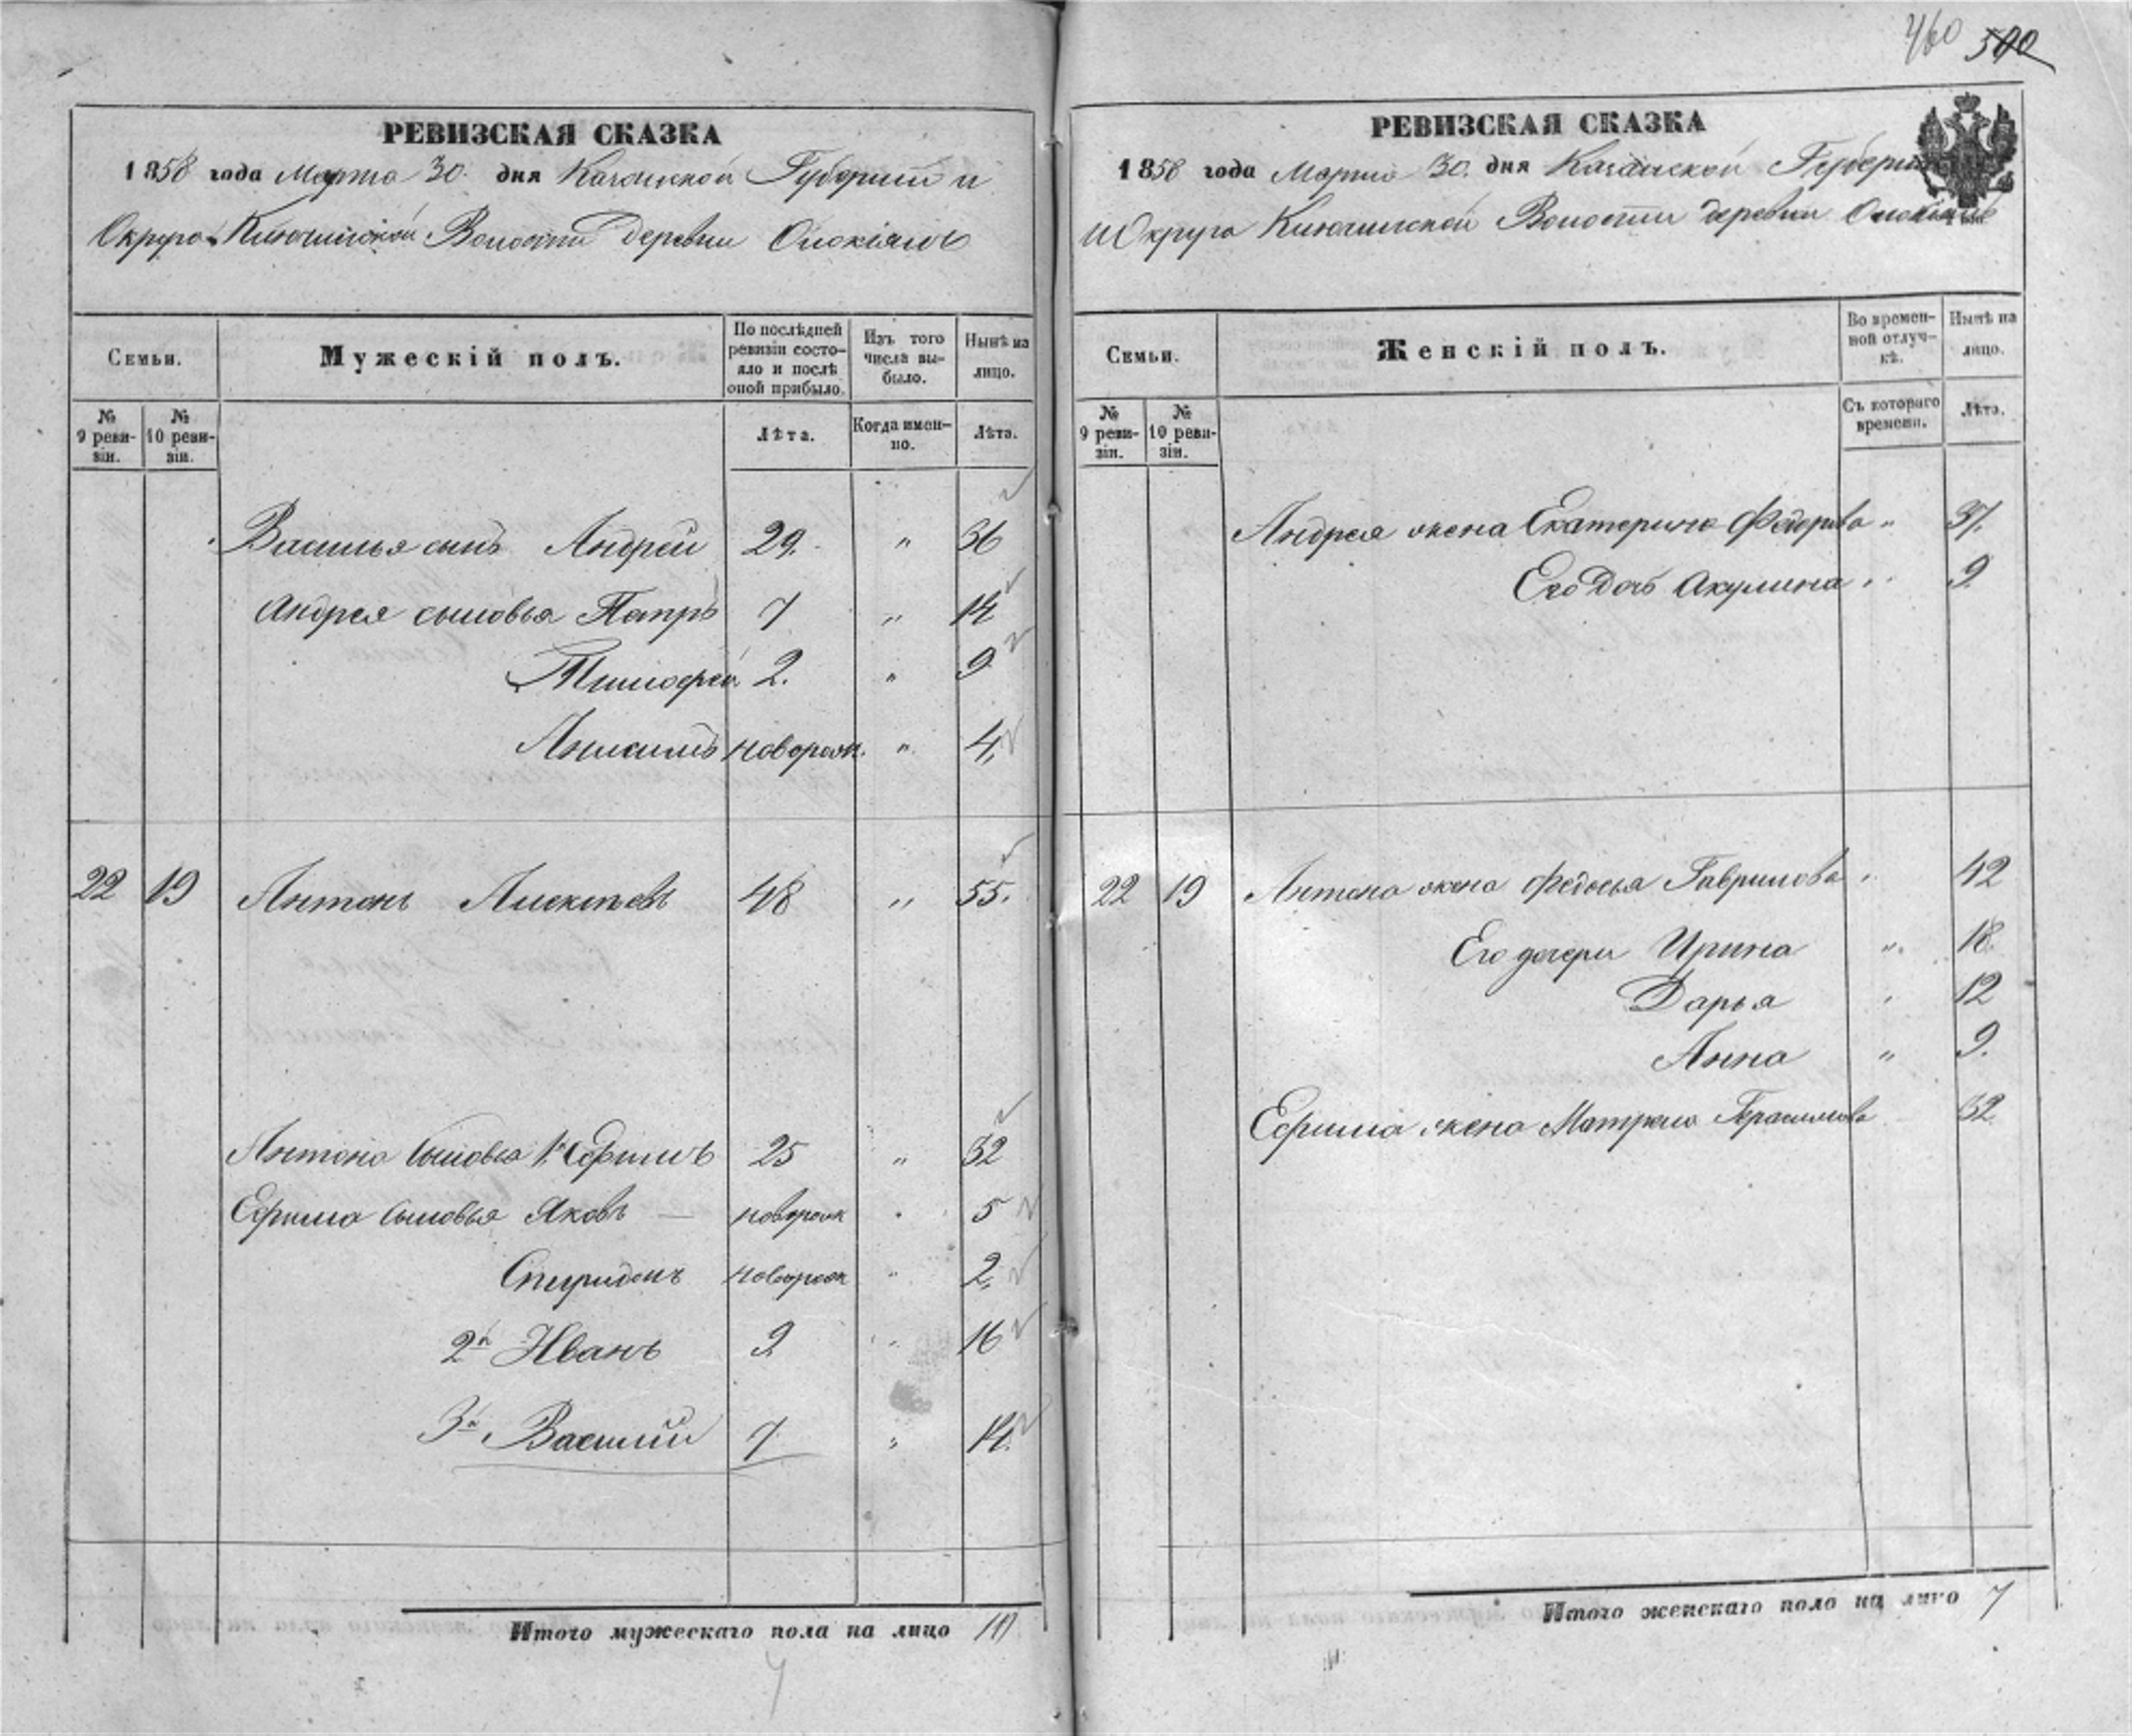 460 500
РЕВИЗСКАЯ СКАЗКА
1858 года Марта 30. дня Казанской Губернии и
Округа Ключинской Волости деревни
Семьи.
Мужескій полъ.
По послѣдней ревизіи состояло и послѣ оной прибыло.
Изъ того числа выбыло.
Нынѣ на лицо.
№ 9 ревизіи.
№ 10 ревизіи.
Лѣта.
Когда именно.
Лѣта.
Василья сынъ Андрей 29. " 36
Андрея сыновья Петръ 7 " 14
Тимофей 2. " 9
Анисимъ новорож. " 4
22 19 Антонъ Алексѣевъ 48 " 55.
Антона сыновья 1й Ефимъ 25 " 32
Ефима сыновья Яковъ — новорож " 5
Спиридонъ новорож " 2
2й Иванъ 9 " 16
3й Василий 7 " 14.
Итого мужескаго пола на лицо 10
РЕВИЗСКАЯ СКАЗКА
1858 года Марта 30. дня Казанской Губернии
и Округа Ключинской Волости деревни
Семьи.
Женскій полъ.
Во временной отлучкѣ.
Нынѣ на лицо.
№ 9 ревизіи.
№ 10 ревизіи.
Съ котораго времени.
Лѣта.
Андрея жена Екатерина Федорова " 37.
Его дочь Акулина " 9
22 19 Антона жена Федосья Гаврилова " 42
Его дочери Ирина " 18.
Дарья " 12
Анна " 9.
Ефима жена Матрена Герасимова 32
Итого женскаго пола на лицо 7